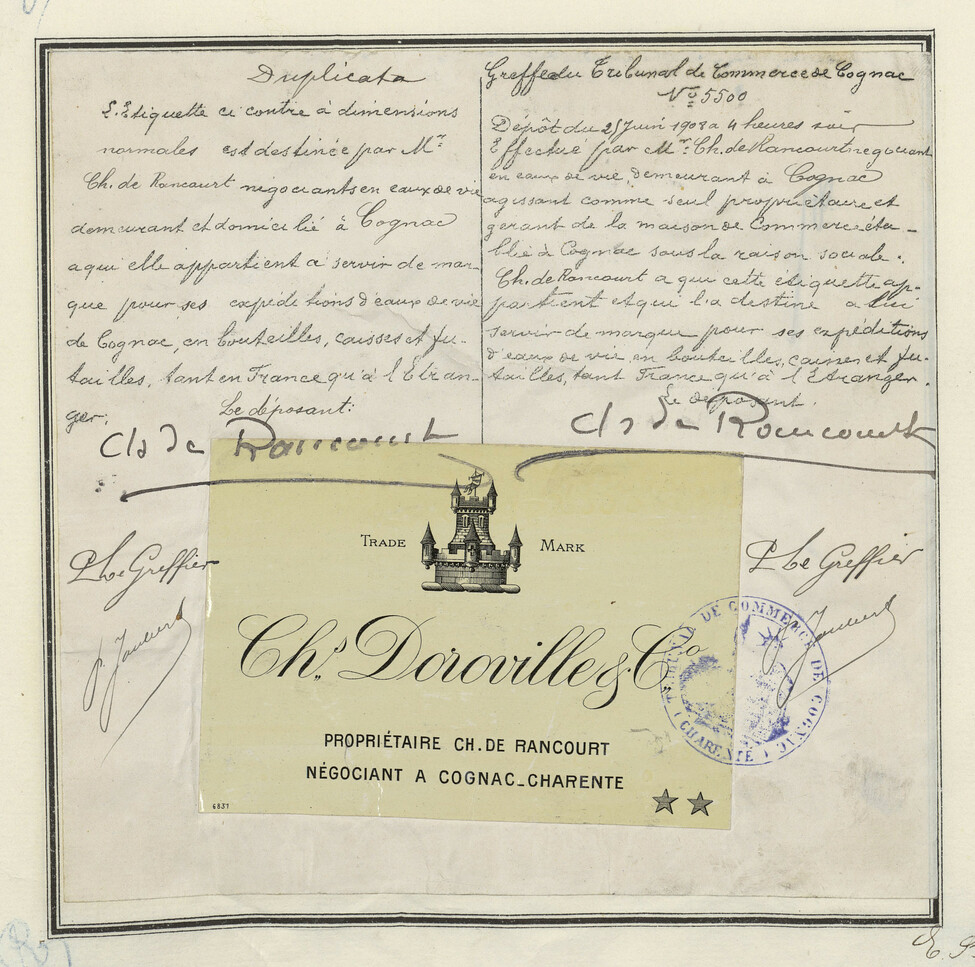 Duplicata
L'Etiquette ci contre à dimensions
normales est destinée par Mr
Ch. de Rancourt négociants en eaux de vie
demeurant et domicilié à Cognac
a qui elle appartient a servir de mar-
que pour ses expéditions d'eaux de vie
de Cognac, en bouteilles, caisses et fu-
tailles, tant en France qu'à l'Etran-
ger.
Le déposant:
Chs de Rancourt
P. Le Greffier
Greffe du Tribunal de Commerce de Cognac
No 5500
Dépôt du 25 Juin 1908 a 4 heures soir
Effectué par Mr Ch. de Rancourt négociant
en eaux de vie, demeurant à Cognac
agissant comme seul propriétaire et
gerant de la maison de Commerce éta-
blie à Cognac sous la raison sociale.
Ch. de Rancourt a que cette étiquette ap-
partient et qui l'a destine a lui
servir de marque pour ses expéditions
d'eaux de vie en bouteilles, caisses et fu-
tailles, tant France qu'à l'Etranger.
Le déposant.
Chs de Rancourt
P Le Greffier
TRADE MARK
Chs. Doroville & Co
PROPRIÉTAIRE CH. DE RANCOURT
NÉGOCIANT A COGNAC_CHARENTE
6837
TRIBUNAL DE COMMERCE DE COGNAC
(CHARENTE)